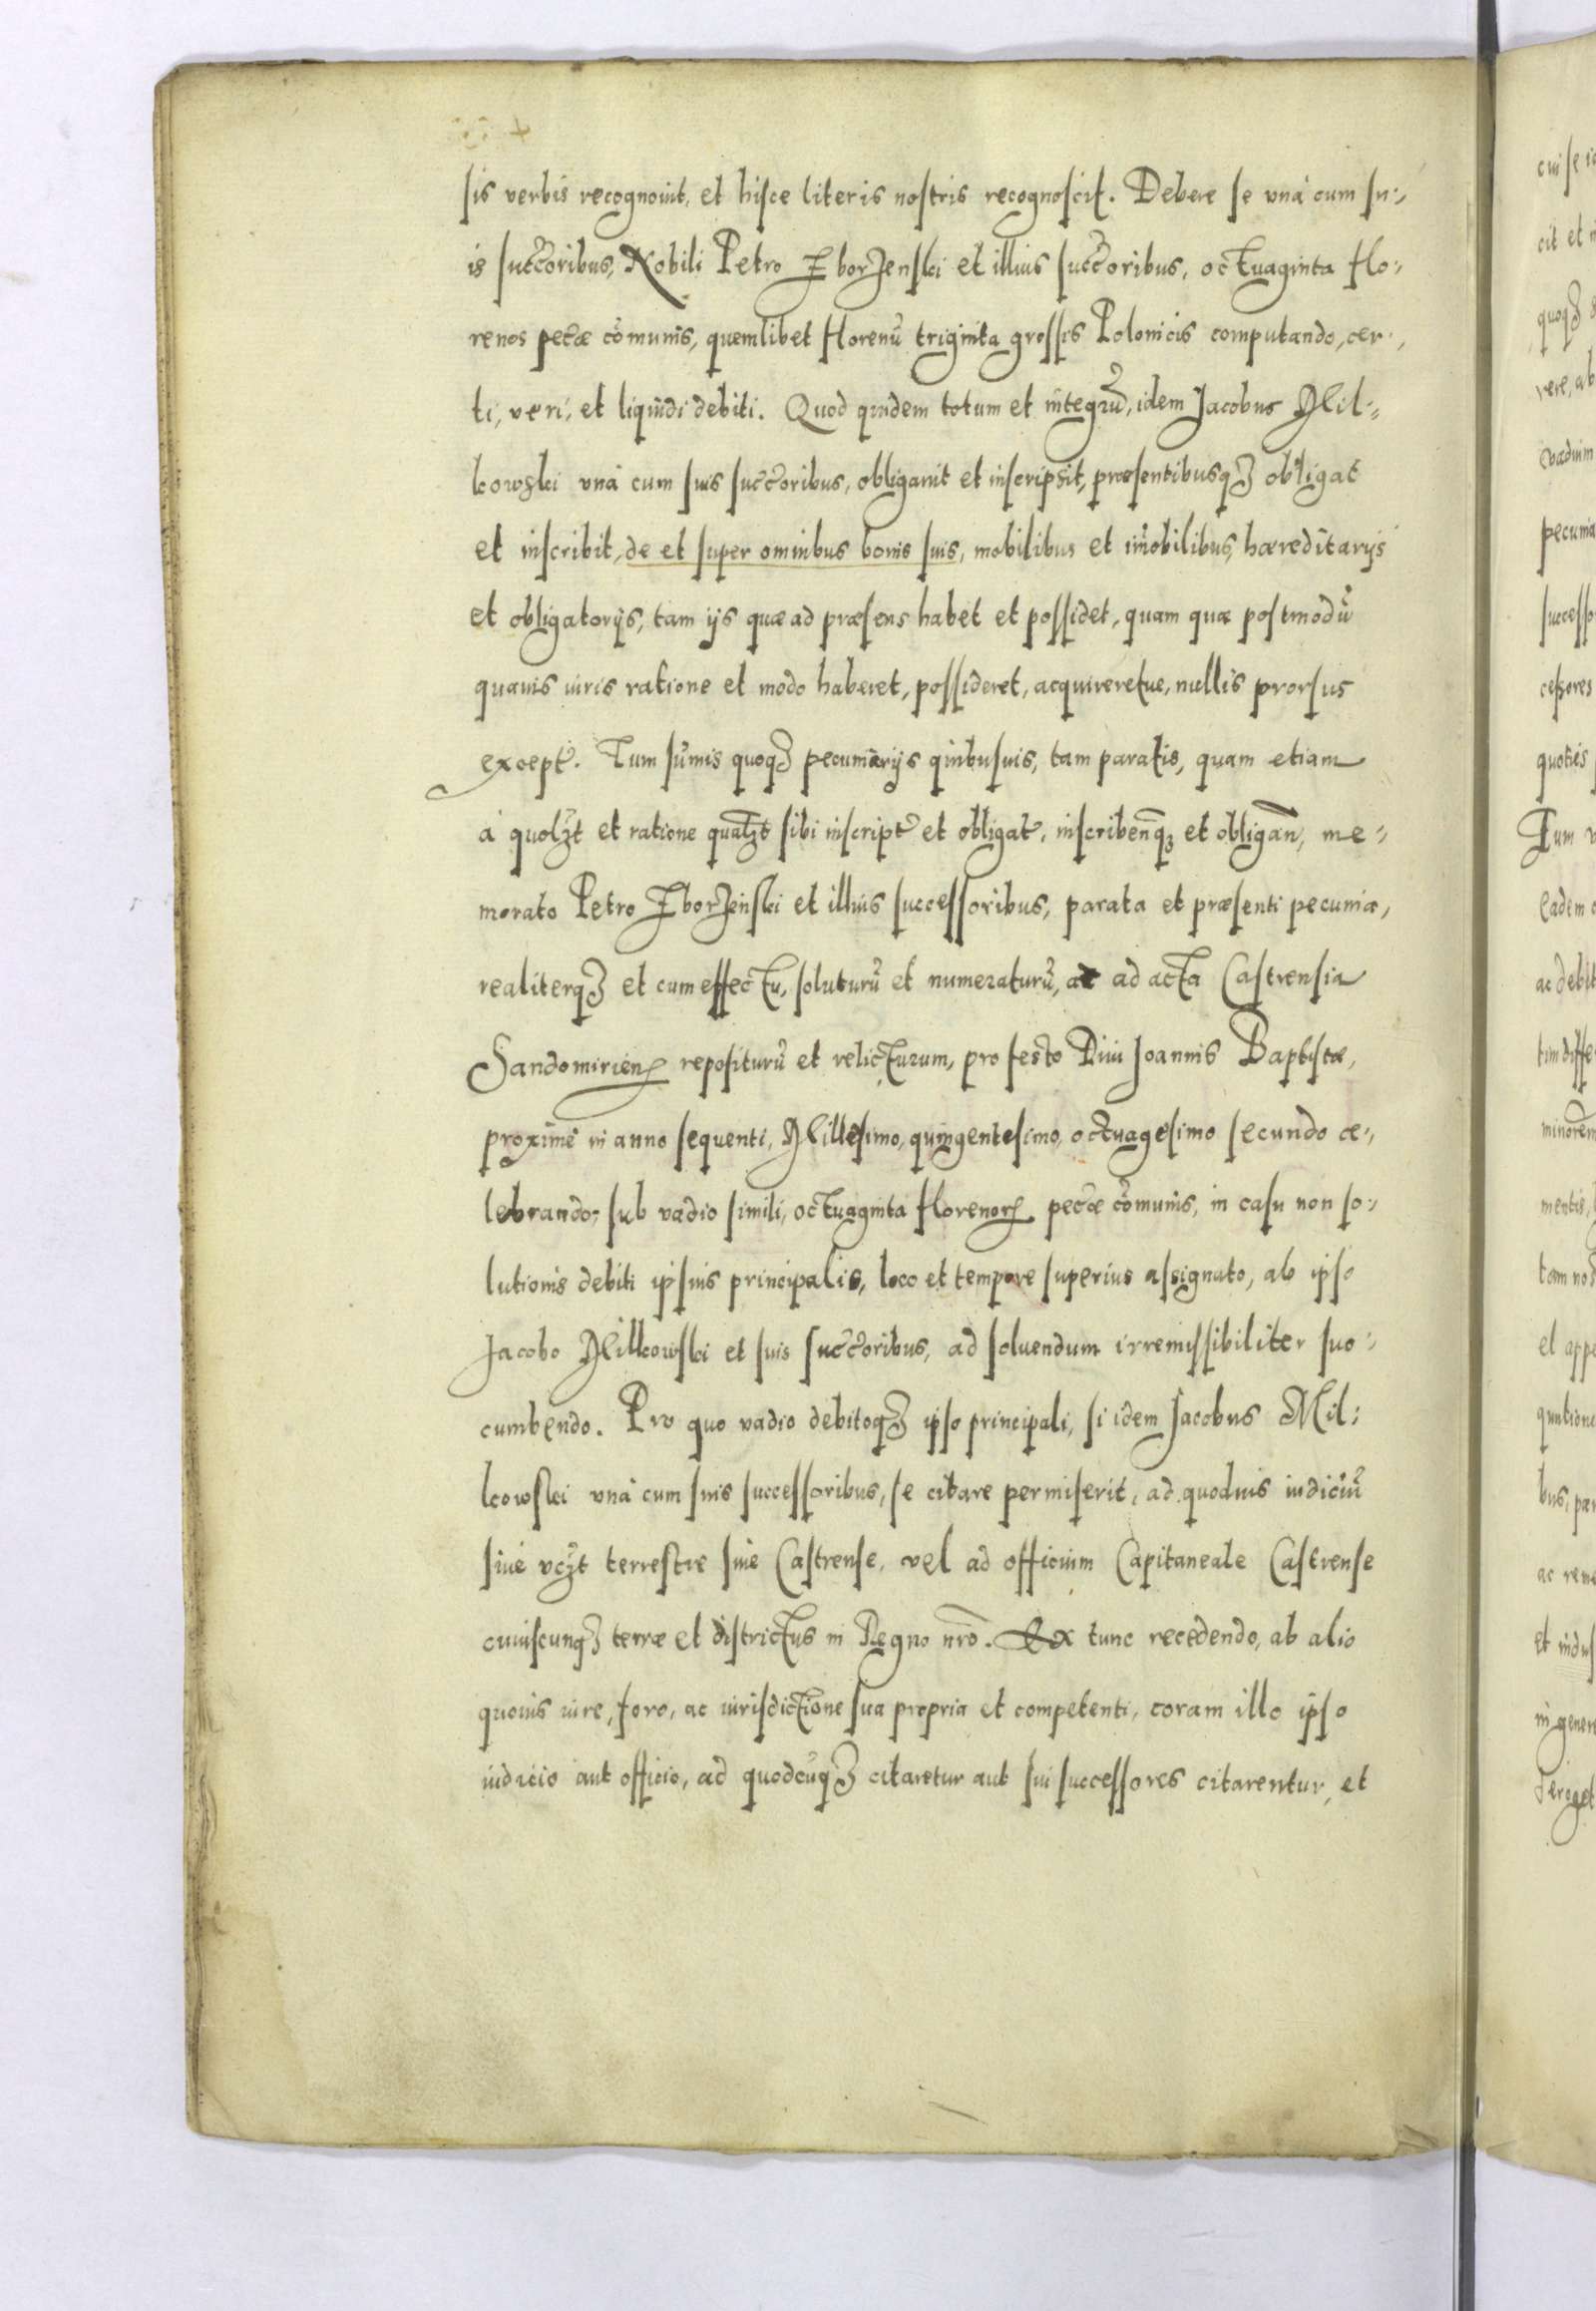 sis verbis recognouit, et hisce literis nostris recognoscit. Debere se unà cum su:,
is succ̃oribus, Nobili Petro Zborzenski et illius succ̃oribus, octuaginta flo:,
renos pec̃æ com̃unis, quemlibet florenũ triginta grossis Polonicis computando, cer:,
ti, veri, et liquidi debiti. Quod quidem totum et integrũ, idem Jacobus Mil:,
kowski unà cum suis succ̃oribus, obligauit et inscripsit, præsentibusqꝫ obligat
et inscribit, de et super omnibus bonis suis, mobilibus et im̃obilibus, hæreditarijs
et obligatorijs, tam ijs quæ ad præsens habet et possidet, quam quæ postmodũ
quauis iuris ratione et modo haberet, possideret, acquireretue, nullis prorsus
except̃. Tum sum̃is quoqꝫ pecuniarijs quibusuis, tam paratis, quam etiam
à quolꝫt et ratione qualꝫt sibi inscript̃ et obligat̃, inscribeñqꝫ et obligañ, me:,
morato Petro Zborzenski et illius successoribus, parata et præsenti pecunia,
realiterqꝫ et cum effectu, soluturũ et numeraturũ, ac ad acta Castrensia
Sandomirieñ repositurũ et relicturum, pro festo Diui Joannis Baptistæ,
proximè in anno sequenti, Millesimo, quingentesimo, octuagesimo secundo ce:,
lebrando, sub vadio simili, octuaginta florenorꝫ pec̃æ com̃unis, in casu non so:,
lutionis debiti ipsius principalis, loco et tempore superius assignato, ab ipso
Jacobo Milkowski et suis succ̃oribus, ad soluendum irremissibiliter suc:,
cumbendo. Pro quo vadio debitoqꝫ ipso principali, si idem Jacobus Mil:,
kowski unà cum suis successoribus, se citare permiserit, ad quoduis iudiciũ
siue vꝫt terrestre siue Castrense, vel ad officium Capitaneale Castrense
cuiuscunqꝫ terræ et districtus in Regno nr̃o. Ex tunc recedendo, ab alio
quouis iure, foro, ac iurisdictione sua propria et competenti, coram illo ipso
iudicio aut officio, ad quodcũqꝫ citaretur aut sui successores citarentur, et
cuise
cit et
quoqꝫ
vere, ab
vadium
pecunia
successo
cessores
quoties
Tum
eadem
ac debit
tim diffe
minorem
mentis,
tam no
el appe
bus, par
ac reme
et indus
in genere
deroget